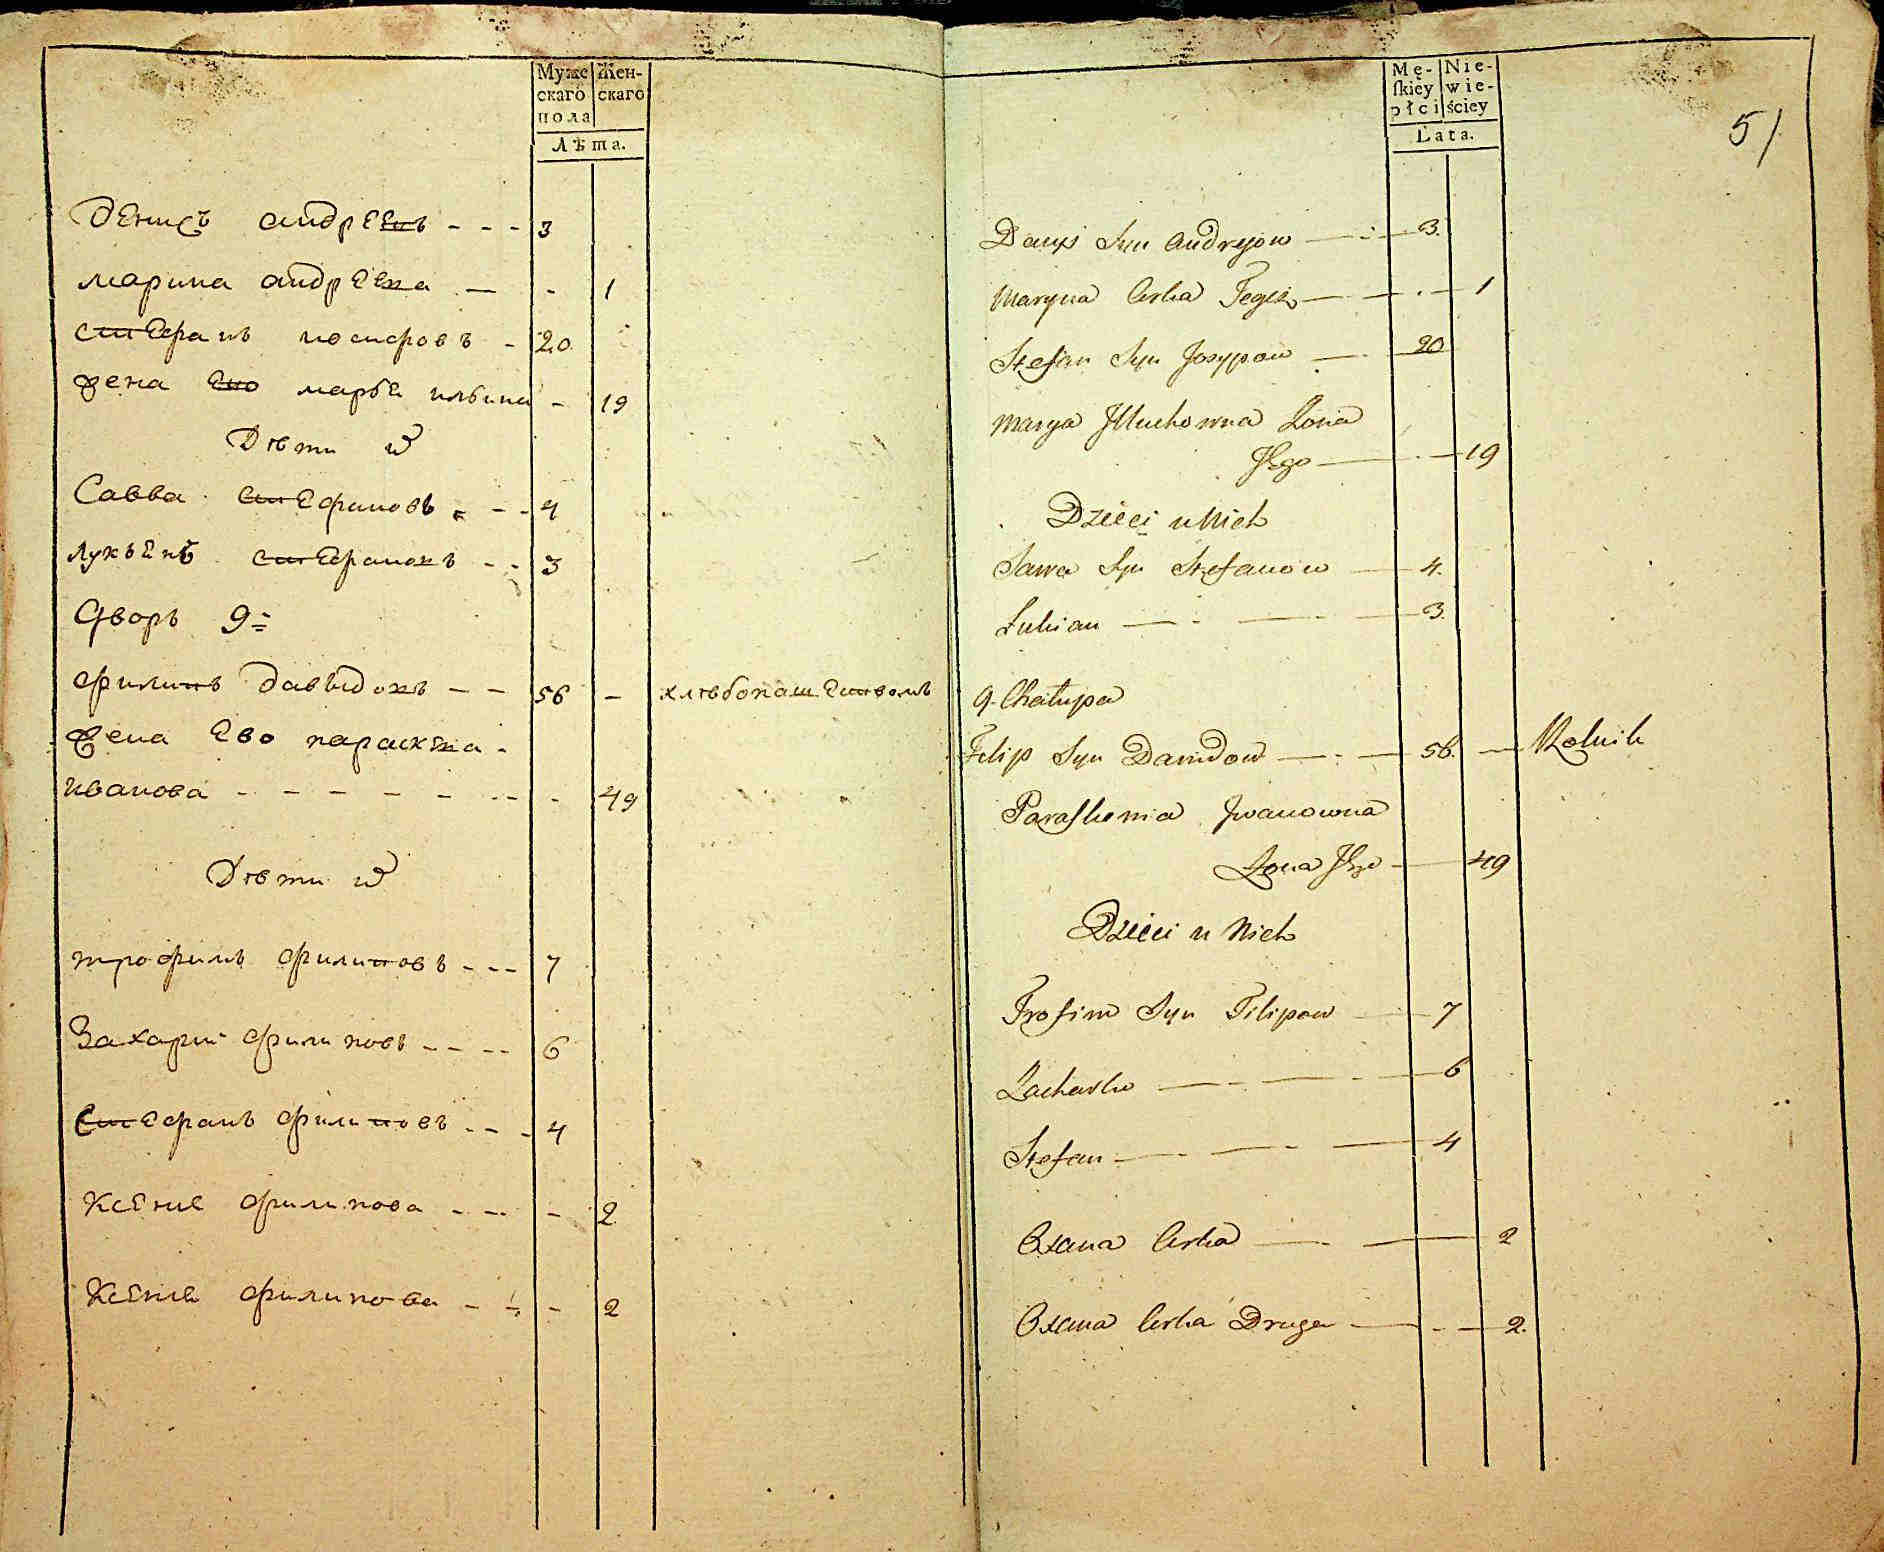 Муже Жен-
скаго скаго
пола
Лѣта.
Денисъ андреевъ - - - 3
марина андреева - - 1
стефанъ иосифовъ - 20
жена ево марья ильина - 19
Дѣти ѿ
Савва стефановъ - - 4
лукьенъ стефановъ - - 3
Дворъ 9=
филипъ давыдовъ - - 56 - хлѣбопашествомъ
жена ево параскева -
иванова - - - - - - - - 49
Дѣти ѿ
трофимъ филиповъ - - - 7
Захарий филиповъ - - - - 6
Стефанъ филиповъ - - - 4
Ксение филипова - - - - 2
Ксение филипова - - - 2
Mę- Nie-
ſkiey wie-
płci ściey
Lata.
51
Denys Syn Andrejow 3.
Maryna Corka Tegoż 1
Stefan Syn Josypow 20
Marya Jlluchowna Żona
Jego 19
Dzieci u Nich
Sawa Syn Stefanow 4.
Lukian 3.
9. Chałupa
Filip Syn Dawidow 56. Rolnik
Paraskewia Jwanowna
Żona Jego 49
Dzieci u Nich
Trofim Syn Filipow 7
Zacharko 6
Stefan 4
Oxana Corka 2
Oxana Corka Druga 2.